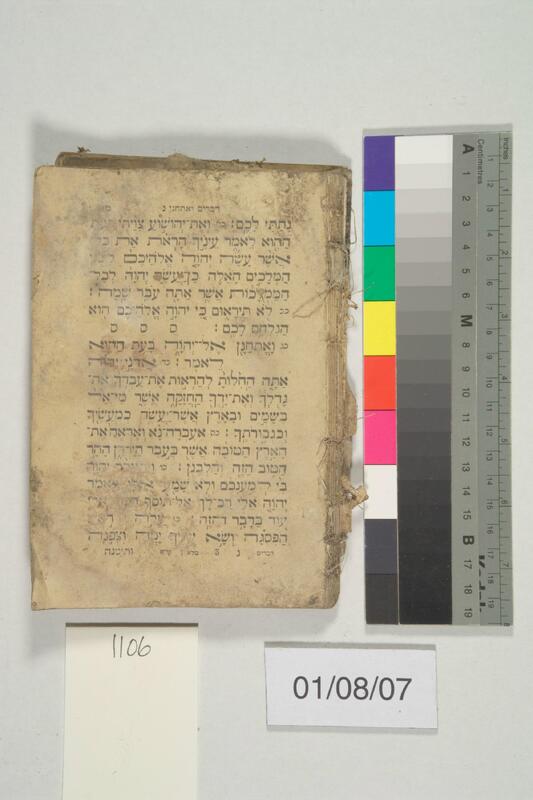 דברים ואתחנן ג
נתתי לכם: ואת־יהושוע צויתי בעת
ההוא לאמר עיניך הראת את כל־
אשר עשה יהוה אלהיכם לשני
המלכים האלה כן־יעשה יהוה לכל־
הממלכות אשר אתה עבר שמה:
כב לא תיראום כי יהוה אלהיכם הוא
הנלחם לכם: ס ס ס
כג ואתחנן אל־יהוה בעת ההוא
לאמר: כד אדני יהוה
אתה החלות להראות את־עבדך את־
גדלך ואת־ידך החזקה אשר מי־אל
בשמים ובארץ אשר־יעשה כמעשיך
וכגבורתך: כה אעברה־נא ואראה את־
הארץ הטובה אשר בעבר הירדן ההר
הטוב הזה והלבנן: כו ויתעבר יהוה
בי למענכם ולא שמע אלי ויאמר
יהוה אלי רב־לך אל־תוסף דבר אלי
עוד בדבר הזה: כז עלה ראש
הפסגה ושא עיניך ימה וצפנה
דברים ג ותימנה
1106
01/08/07
Centimetres
Inches
A 1 2 3 4 5 6 M 8 9 10 11 12 13 14 15 B 17 18 19